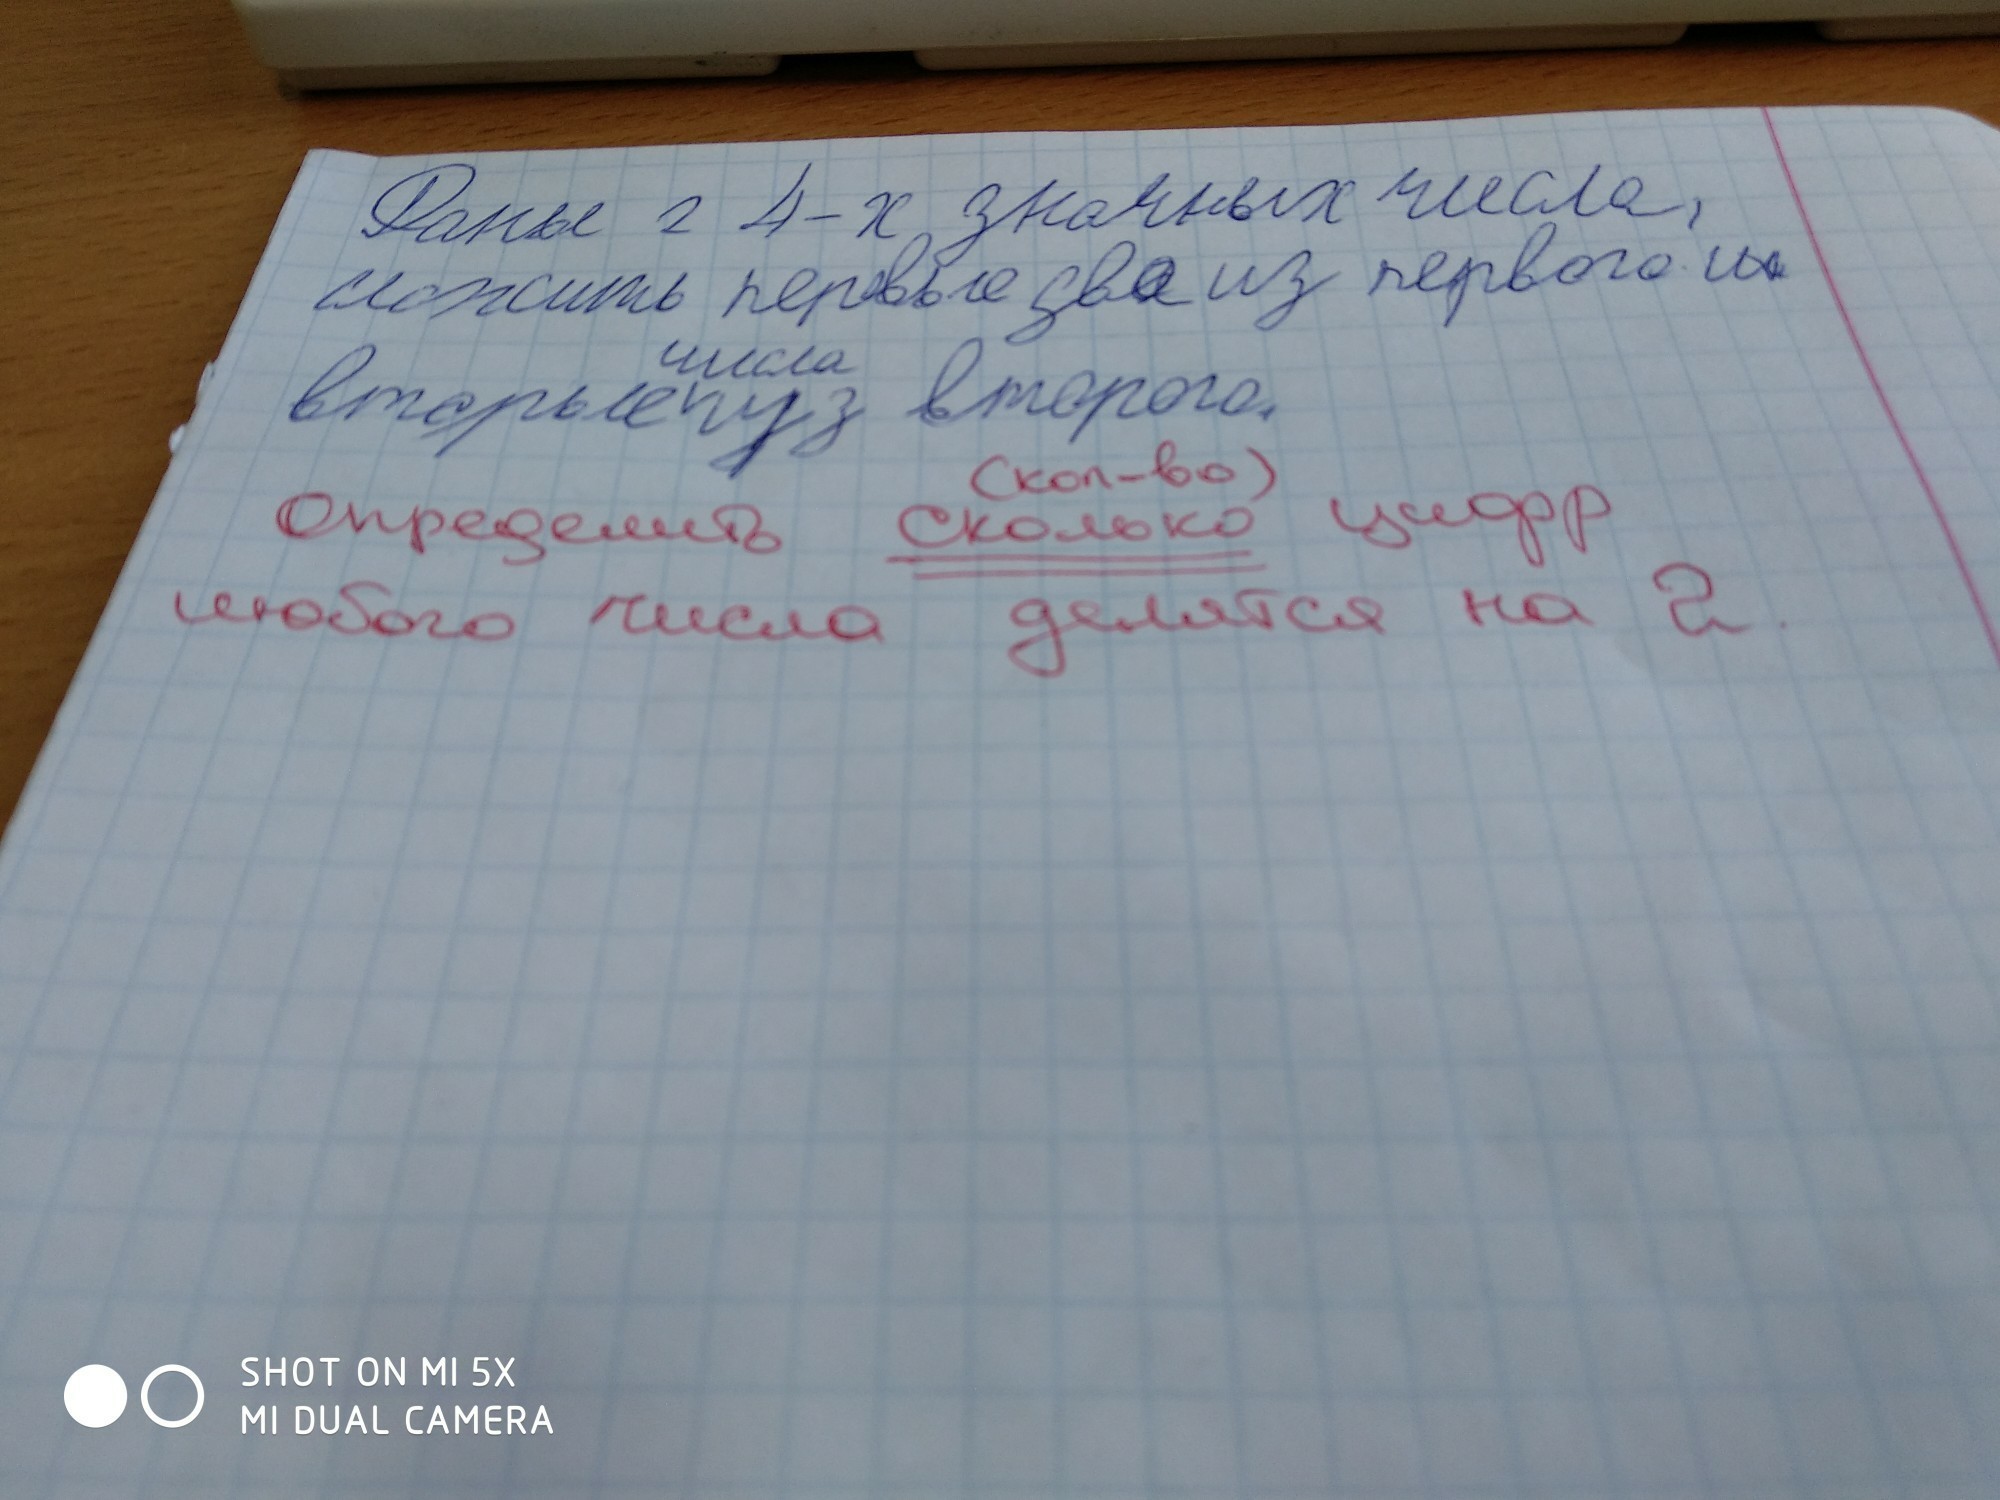 Даны 2 4-х значных числа,
сложить первые два из первого и
числа
вторые из второго.
(кол-во)
Определить сколько цифр
любого числа делятся на 2.
SHOT ON MI 5X
MI DUAL CAMERA